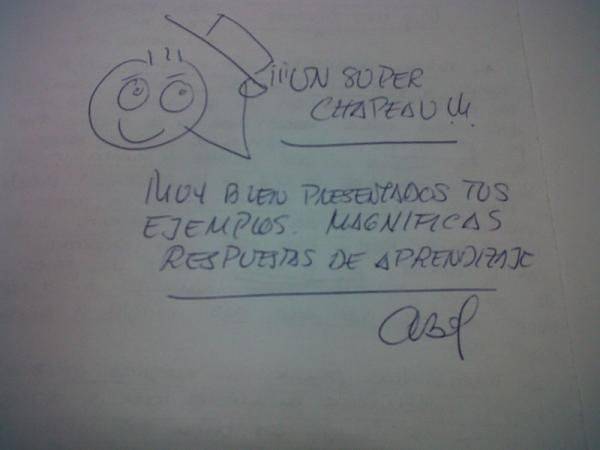 ¡¡¡UN SUPER
CHAPEAU!!!
MUY BIEN PRESENTADOS TUS
EJEMPLOS. MAGNIFICAS
RESPUESTAS DE APRENDIZAJE
Abel